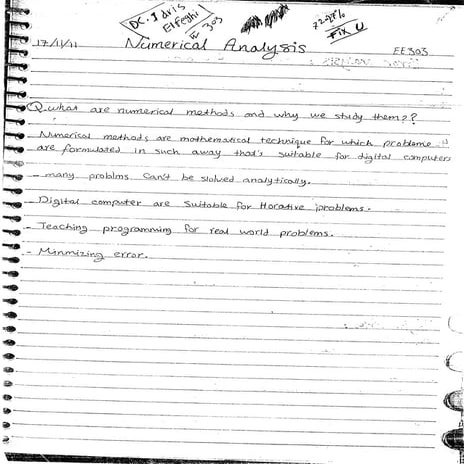 DC. Idris
Elfeghi
EE 303
17/11/11
Numerical Analysis
EE303
Fix U
Q. what are numerical methods and why we study them??
Numerical methods are mathematical technique for which probleme
are formulated in such away that's suitable for digital computers
- many problms Can't be slolved analytisally.
- Digital computer are suitable for Itorative iproblems.
- Teaching programming for real world problems.
- Minmizing error.